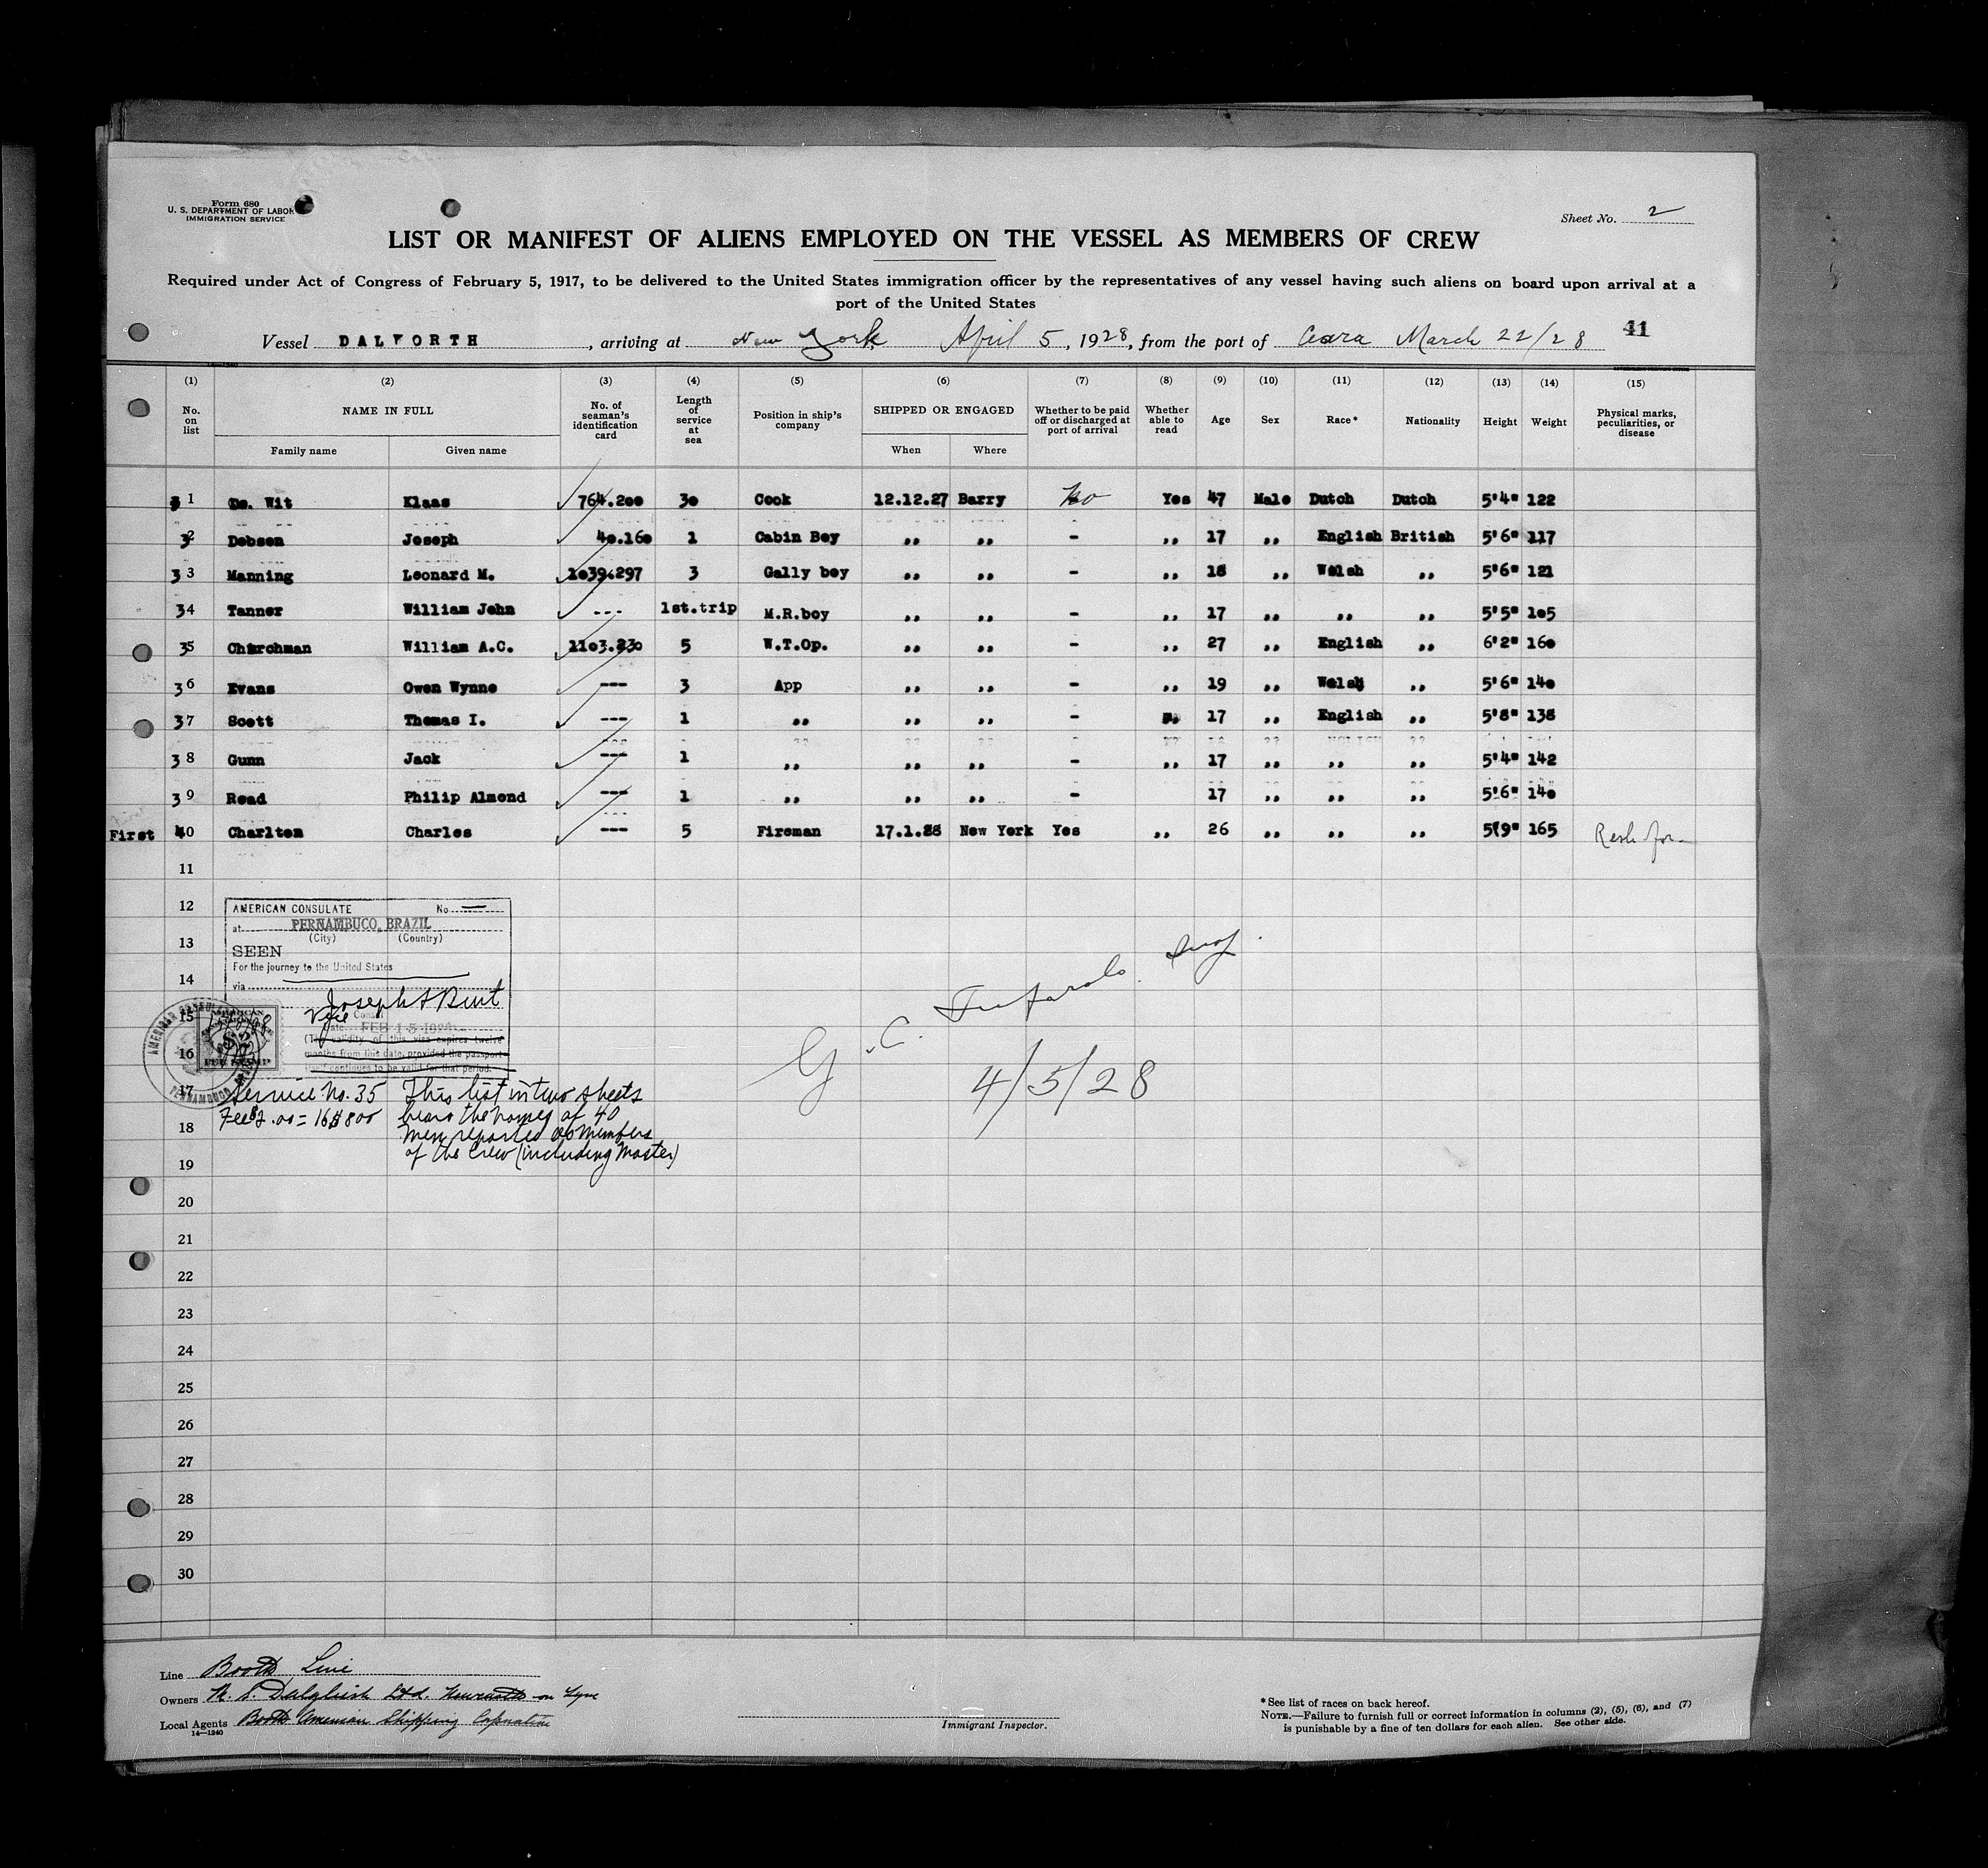 Form 680
U. S. DEPARTMENT OF LABOR
IMMIGRATION SERVICE
Sheet No. 2
LIST OR MANIFEST OF ALIENS EMPLOYED ON THE VESSEL AS MEMBERS OF CREW
Required under Act of Congress of February 5, 1917, to be delivered to the United States immigration officer by the representatives of any vessel having such aliens on board upon arrival at a
port of the United States
Vessel DALWORTH, arriving at New York April 5, 1928, from the port of Ceara March 22/28 41
(1) (2) (3) (4) (5) (6) (7) (8) (9) (10) (11) (12) (13) (14) (15)
No. on list NAME IN FULL No. of seaman's identification card Length of service at sea Position in ship's company SHIPPED OR ENGAGED Whether to be paid off or discharged at port of arrival Whether able to read Age Sex Race* Nationality Height Weight Physical marks, peculiarities, or disease
Family name Given name When Where
31 De. Wit Klaas 764.200 30 Cook 12.12.27 Barry No Yes 47 Male Dutch Dutch 5'4" 122
32 Dobson Joseph 40.160 1 Cabin Boy ,, ,, - ,, 17 ,, English British 5'6" 117
33 Manning Leonard M. 1039.297 3 Gally boy ,, ,, - ,, 18 ,, Welsh ,, 5'6" 121
34 Tanner William John --- 1st.trip M.R.boy ,, ,, - ,, 17 ,, ,, ,, 5'5" 105
35 Churchman William A.C. 1103.230 5 W.T.Op. ,, ,, - ,, 27 ,, English ,, 6'2" 160
36 Evans Owen Wynne --- 3 App ,, ,, - ,, 19 ,, Welsh ,, 5'6" 140
37 Scott Thomas I. --- 1 ,, ,, ,, - ,, 17 ,, English ,, 5'8" 138
38 Gunn Jack --- 1 ,, ,, ,, - ,, 17 ,, ,, ,, 5'4" 142
39 Read Philip Almond --- 1 ,, ,, ,, - 17 ,, ,, ,, 5'6" 140
First 40 Charlton Charles --- 5 Fireman 17.1.28 New York Yes ,, 26 ,, ,, ,, 5'9" 165
11
12
13
14
15
16
17
18
19
20
21
22
23
24
25
26
27
28
29
30
AMERICAN CONSULATE No. —
at PERNAMBUCO, BRAZIL
(City) (Country)
SEEN
For the journey to the United States
via
Vice Consul
Date FEB 15 1928
(The validity of this visa expires twelve
months from this date, provided the passport
itself continues to be valid for that period.
Service No. 35
Fee $2.00 = 16$800
This list in two sheets
bears the names of 40
men reported as members
of the Crew (including Master)
4/5/28
Line Booth Line
Owners R. S. Dalgliesh Ltd. Newcastle on Tyne
Local Agents Booth American Shipping Corporation
14—1240
Immigrant Inspector.
* See list of races on back hereof.
NOTE.—Failure to furnish full or correct information in columns (2), (5), (6), and (7)
is punishable by a fine of ten dollars for each alien. See other side.